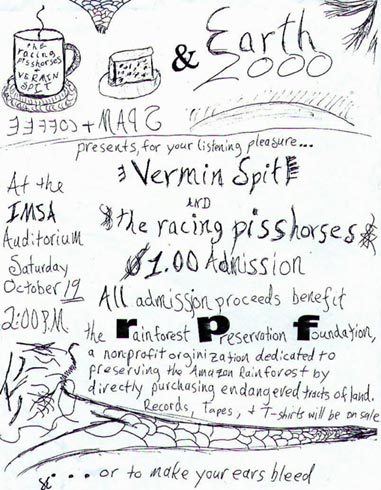 the
racing
pisshorses
+
VERMIN
SPIT
& Earth
2000
SPAM + COFFEE
presents, for your listening pleasure...
Vermin Spit
AND
the racing pisshorses
$1.00 Admission
At the
IMSA
Auditorium
Saturday
October 19
2:00 P.M.
All admission proceeds benefit
the rainforest Preservation foundation,
a nonprofit orginization dedicated to
preserving the Amazon Rainforest by
directly purchasing endangered tracts of land.
Records, Tapes, + T-shirts will be on sale
... or to make your ears bleed